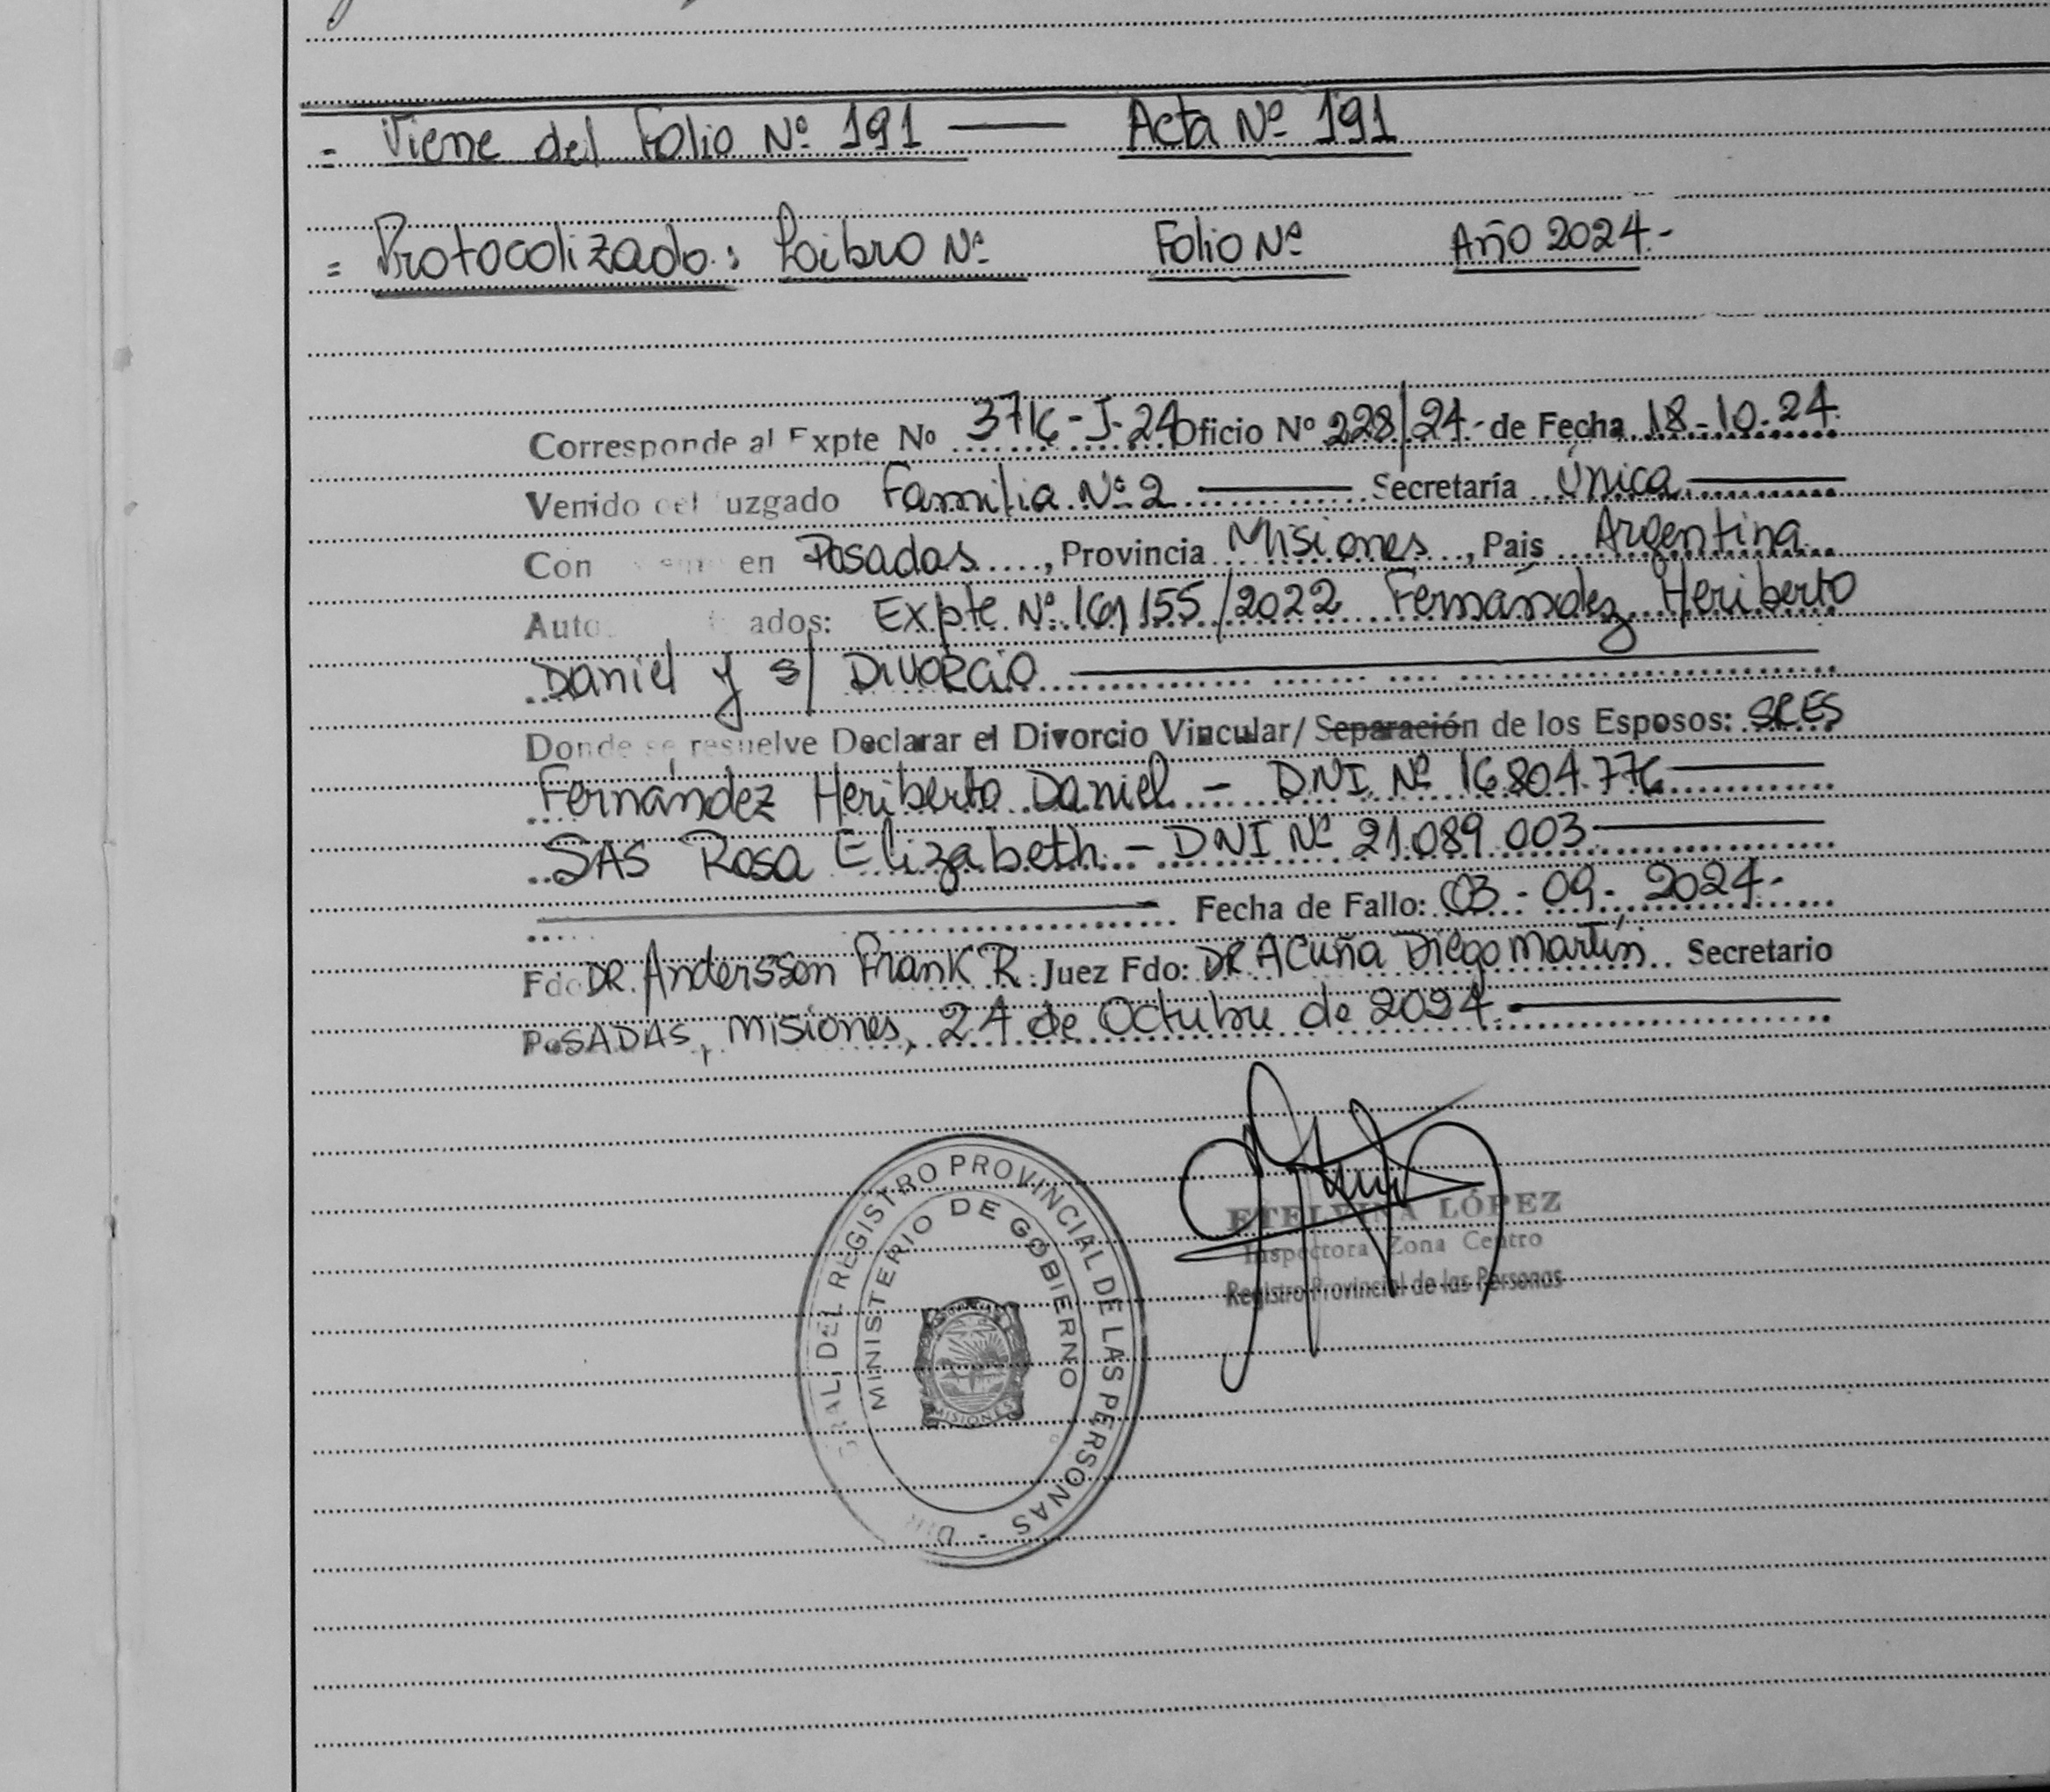 = Viene del Folio Nº 191 — Acta Nº 191
= Protocolizado: Libro Nº Folio Nº Año 2024.-
Corresponde al Expte Nº 3716-J-24 Oficio Nº 228/24- de Fecha 18-10-24.
Venido del Juzgado Familia Nº 2 — Secretaría Única —
Con en Posadas, Provincia Misiones, Pais Argentina
Auto ados: Expte Nº 161155/2022 Fernández Heriberto
Daniel y s/ Divorcio —
Donde se resuelve Declarar el Divorcio Vincular/ Separación de los Esposos: SRES
Fernández Heriberto Daniel - DNI Nº 16.804.776 —
SAS Rosa Elizabeth - DNI Nº 21.089.003 —
— Fecha de Fallo: 03-09-2024-
Fdo DR. Andersson Frank R. Juez Fdo: DR Acuña Diego Martín. Secretario
POSADAS, Misiones, 24 de Octubre de 2024. —
ETELVINA LÓPEZ
Inspectora Zona Centro
Registro Provincial de las Personas
RAL DEL REGISTRO PROVINCIAL DE LAS PERSONAS - DIR
MINISTERIO DE GOBIERNO
MISIONES